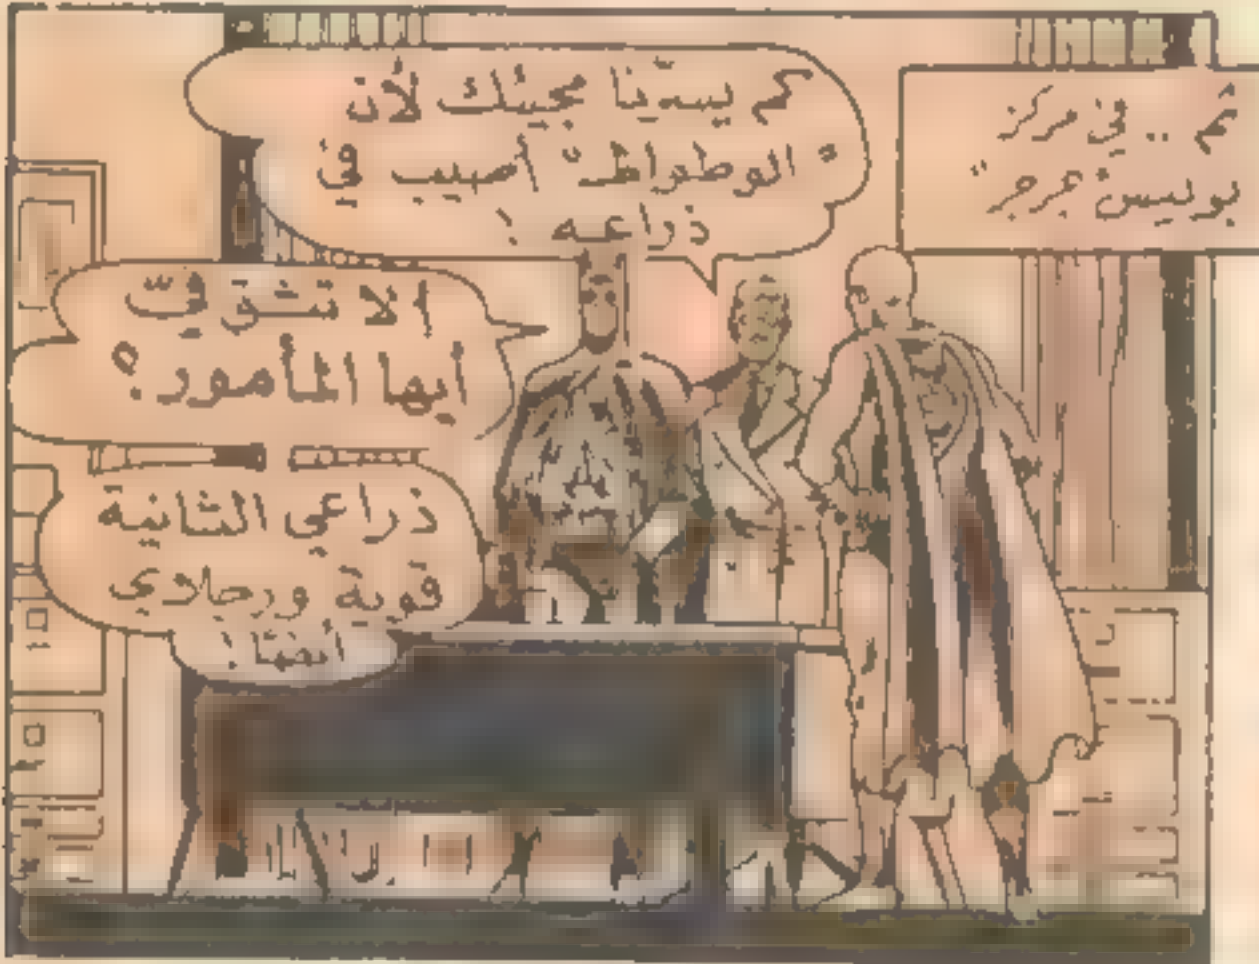 ثم .. في مركز
بوليس "جرجر"
كم يسرّنا مجيئك لأن
"الوطواط" أصيب في
ذراعه !
ألا تثق فيّ
أيها المأمور؟
ذراعي الثانية
قوية ورجلاي
أيضًا !